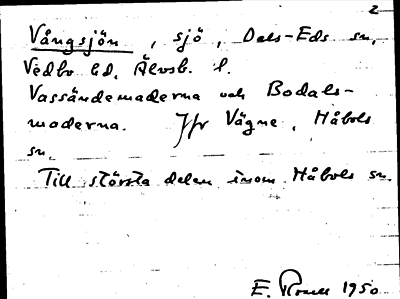 2
Vångsjön, sjö, Dals-Eds sn,
Vedbo hd, Älvsb. l.
Vassändemaderna och Bodals-
maderna. Jfr Vägne, Håbols
sn.
Till största delen inom Håbols sn.
E. Rosell 1950